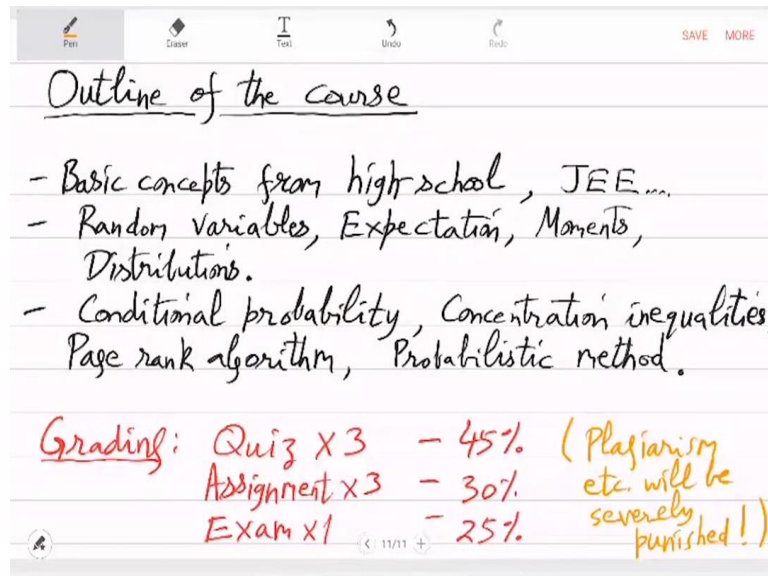 Pen Eraser Text Undo Redo SAVE MORE
Outline of the course
- Basic concepts from high school, JEE....
- Random variables, Expectation, Moments,
Distributions.
- Conditional probability, Concentration inequalities
Page rank algorithm, Probabilistic method.
Grading: Quiz x 3 - 45%
Assignment x 3 - 30%
Exam x 1 - 25%
(Plagiarism
etc. will be
severely
punished!)
< 11/11 +